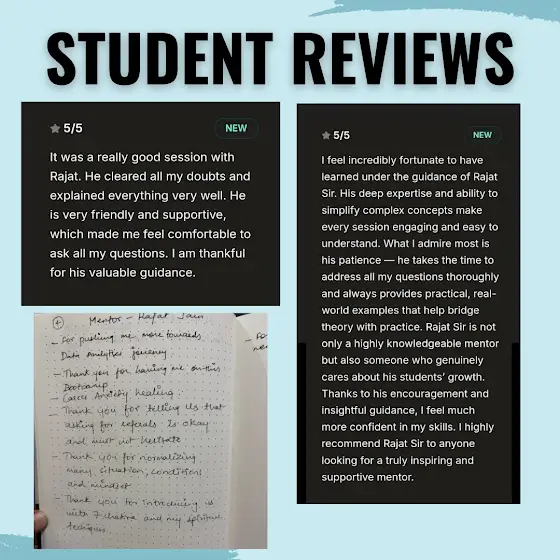 STUDENT REVIEWS
5/5
NEW
It was a really good session with
Rajat. He cleared all my doubts and
explained everything very well. He
is very friendly and supportive,
which made me feel comfortable to
ask all my questions. I am thankful
for his valuable guidance.
Mentor - Rajat Jain
- For pushing me more towards
Data Analytics journey
- Thank you for having me on this
Bootcamp
- Career Anxiety healing
- Thank you for telling us that
asking for referals is okay
and must not hesitate
- Thank you for normalizing
many situation, conditions
and mindset
- Thank you for introducing us
with 7 chakra and my spiritual
techniques
5/5
NEW
I feel incredibly fortunate to have
learned under the guidance of Rajat
Sir. His deep expertise and ability to
simplify complex concepts make
every session engaging and easy to
understand. What I admire most is
his patience — he takes the time to
address all my questions thoroughly
and always provides practical, real-
world examples that help bridge
theory with practice. Rajat Sir is not
only a highly knowledgeable mentor
but also someone who genuinely
cares about his students’ growth.
Thanks to his encouragement and
insightful guidance, I feel much
more confident in my skills. I highly
recommend Rajat Sir to anyone
looking for a truly inspiring and
supportive mentor.